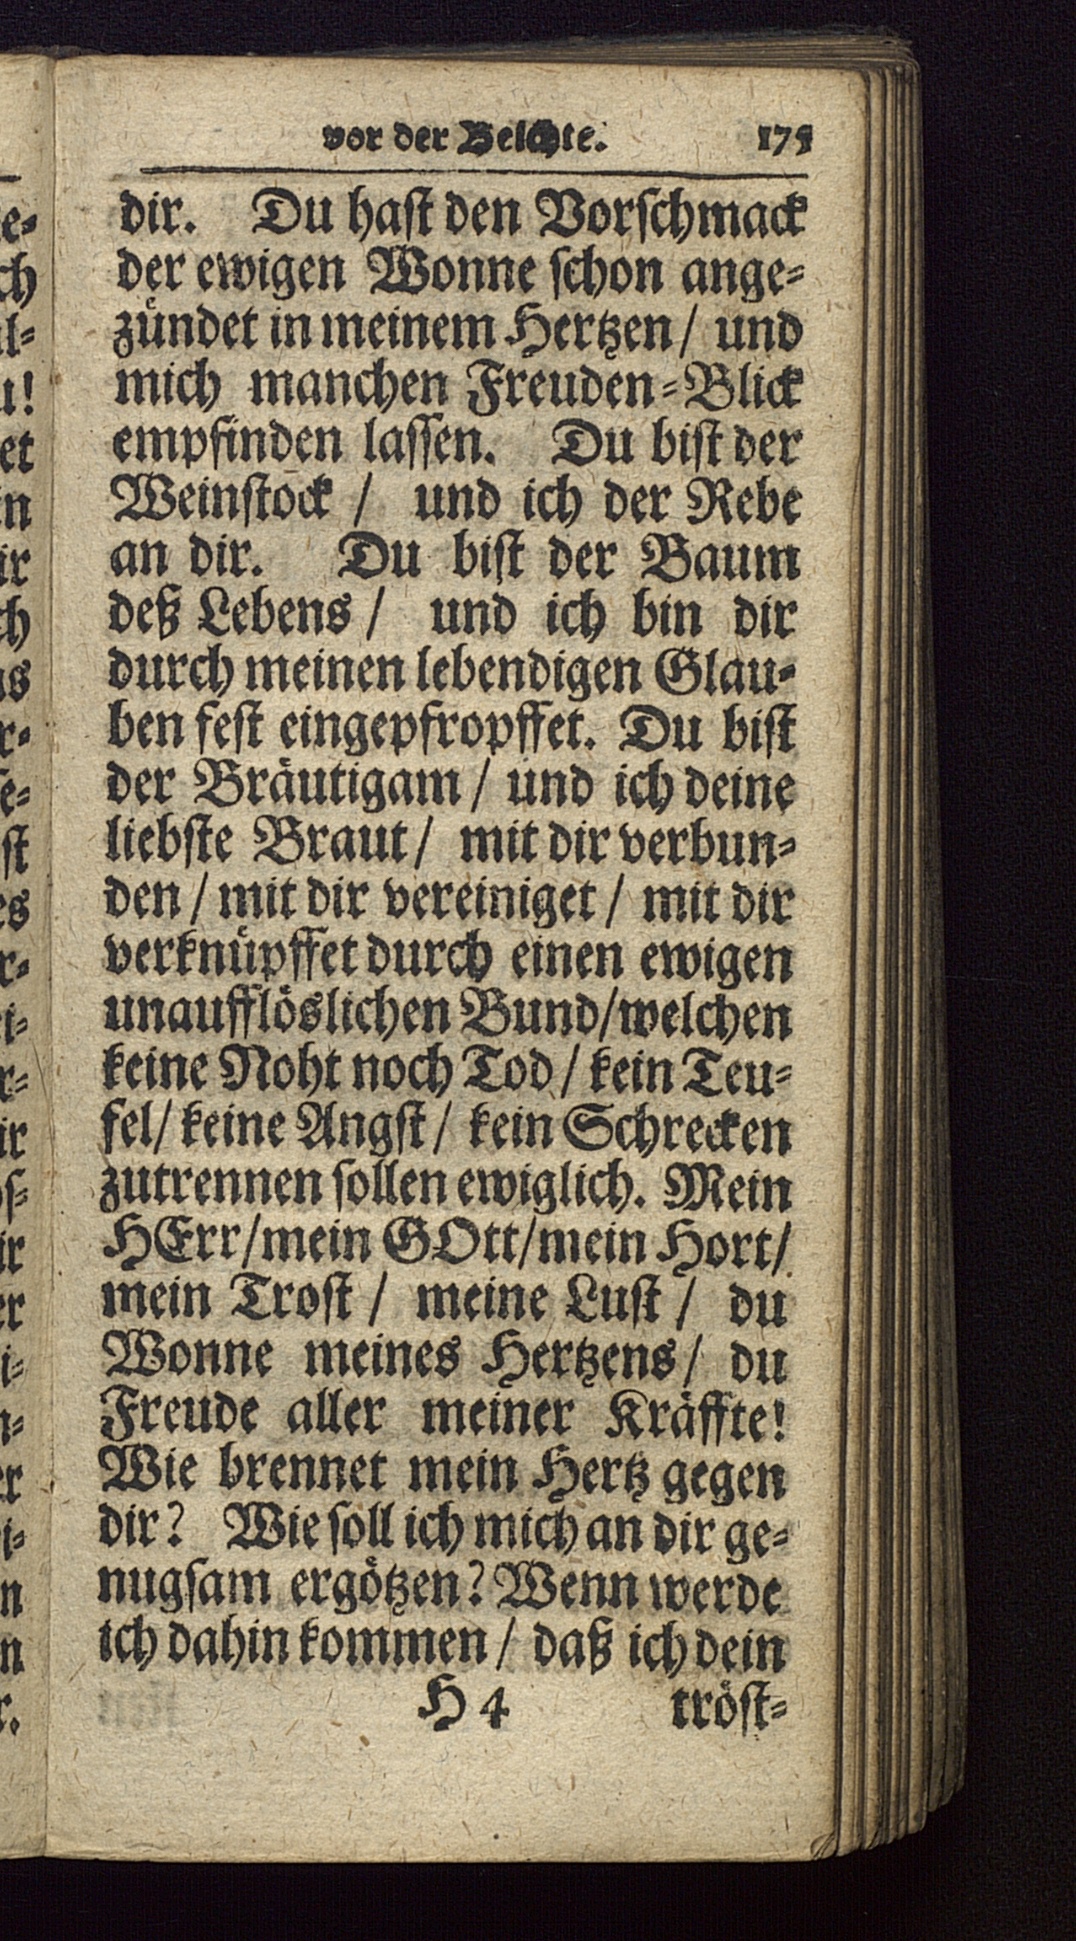 vor der Beichte. 175
dir. Du hast den Vorschmack
der ewigen Wonne schon ange-
zündet in meinem Hertzen/ und
mich manchen Freuden-Blick
empfinden lassen. Du bist der
Weinstock / und ich der Rebe
an dir. Du bist der Baum
deß Lebens / und ich bin dir
durch meinen lebendigen Glau-
ben fest eingepfropffet. Du bist
der Bräutigam / und ich deine
liebste Braut / mit dir verbun-
den / mit dir vereiniget / mit dir
verknüpffet durch einen ewigen
unaufflöslichen Bund/welchen
keine Noht noch Tod / kein Teu-
fel/ keine Angst / kein Schrecken
zutrennen sollen ewiglich. Mein
HErr/mein GOtt/mein Hort/
mein Trost / meine Lust / du
Wonne meines Hertzens / du
Freude aller meiner Kräffte!
Wie brennet mein Hertz gegen
dir? Wie soll ich mich an dir ge-
nugsam ergötzen? Wenn werde
ich dahin kommen / daß ich dein
H 4 tröst-